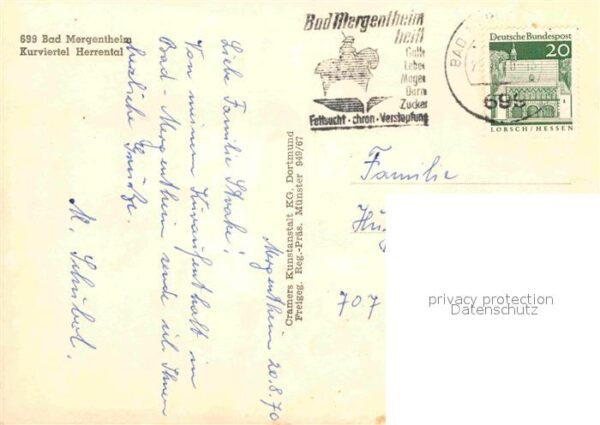 699 Bad Mergentheim
Kurviertel Herrental
Mergentheim 20.8.70
Liebe Familie
Von meinem Kuraufenthalt in
Bad-Mergentheim sende ich Ihnen
herzliche Grüße.
M.
Cramers Kunstanstalt KG. Dortmund
Freigeg. Reg.-Präs. Münster 949/67
Bad Mergentheim
heilt
Galle
Leber
Magen
Darm
Zucker
Fettsucht · chron · Verstopfung
BAD
699
Deutsche Bundespost
20
LORSCH/HESSEN
Familie
707
privacy protection
Datenschutz